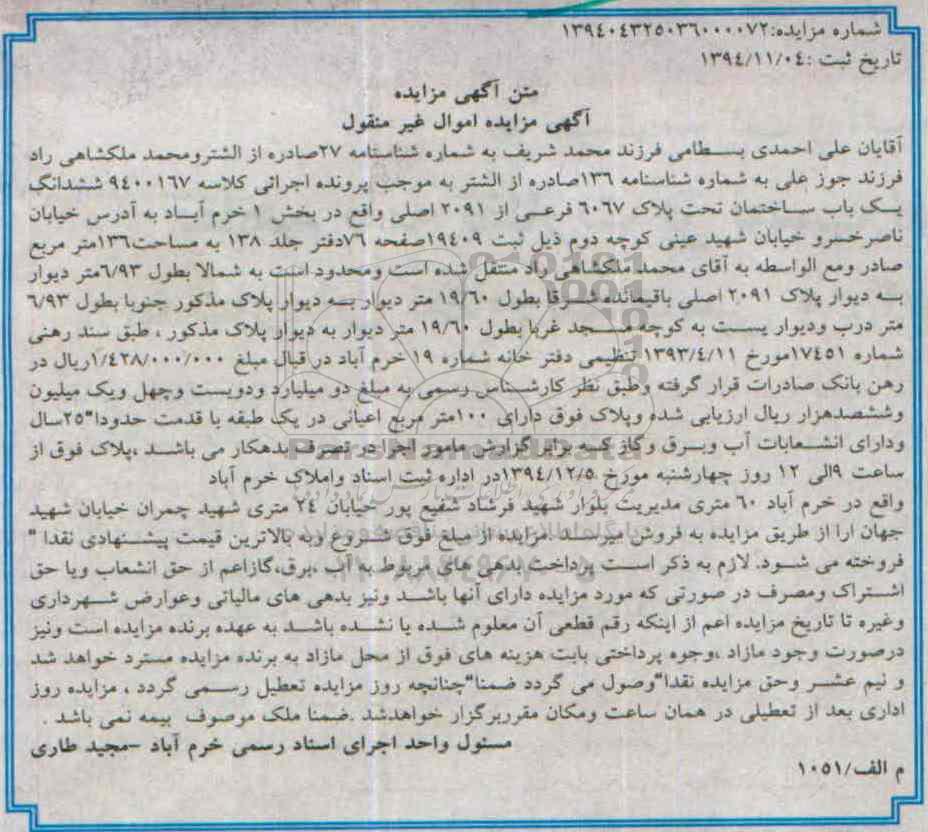 شماره مزایده:۱۳۹٤۰٤۳۲٥۰۳٦۰۰۰۰۷۲
تاریخ ثبت :۱۳۹٤/۱۱/۰٤
متن آگهی مزایده
آگهی مزایده اموال غیر منقول
آقایان علی احمدی بسطامی فرزند محمد شریف به شماره شناسنامه ۲۷صادره از الشترومحمد ملکشاهی راد
فرزند جوز علی به شماره شناسنامه ۱۳٦صادره از الشتر به موجب پرونده اجرائی کلاسه ۹٤۰۰۱٦۷ ششدانگ
یک باب ساختمان تحت پلاک ٦۰٦۷ فرعی از ۲۰۹۱ اصلی واقع در بخش ۱ خرم آباد به آدرس خیابان
ناصرخسرو خیابان شهید عینی کوچه دوم ذیل ثبت ۱۹٤۰۹صفحه ۷٦دفتر جلد ۱۳۸ به مساحت۱۳٦متر مربع
صادر ومع الواسطه به آقای محمد ملکشاهی راد منتقل شده است ومحدود است به شمالا بطول ٦/۹۳متر دیوار
به دیوار پلاک ۲۰۹۱ اصلی باقیمانده شرقا بطول ۱۹/٦۰ متر دیوار به دیوار پلاک مذکور جنوبا بطول ٦/۹۳
متر درب ودیوار یست به کوچه مسجد غربا بطول ۱۹/٦۰ متر دیوار به دیوار پلاک مذکور ، طبق سند رهنی
شماره ۱۷٤٥۱مورخ ۱۳۹۳/٤/۱۱ تنظیمی دفتر خانه شماره ۱۹ خرم آباد در قبال مبلغ ۱/٤۲۸/۰۰۰/۰۰۰ریال در
رهن بانک صادرات قرار گرفته وطبق نظر کارشناس رسمی به مبلغ دو میلیارد ودویست وچهل ویک میلیون
وششصدهزار ریال ارزیابی شده وپلاک فوق دارای ۱۰۰متر مربع اعیانی در یک طبقه با قدمت حدودا"۲٥سال
ودارای انشعابات آب وبرق وگاز که برابر گزارش مامور اجرا در تصرف بدهکار می باشد ،پلاک فوق از
ساعت ۹الی ۱۲ روز چهارشنبه مورخ ۱۳۹٤/۱۲/٥در اداره ثبت اسناد واملاک خرم آباد
واقع در خرم آباد ٦۰ متری مدیریت بلوار شهید فرشاد شفیع پور خیابان ۲٤ متری شهید چمران خیابان شهید
جهان ارا از طریق مزایده به فروش میرسد .مزایده از مبلغ فوق شروع وبه بالاترین قیمت پیشنهادی نقدا "
فروخته می شود. لازم به ذکر است پرداخت بدهی های مربوط به آب ،برق،گازاعم از حق انشعاب ویا حق
اشتراک ومصرف در صورتی که مورد مزایده دارای آنها باشد ونیز بدهی های مالیاتی وعوارض شهرداری
وغیره تا تاریخ مزایده اعم از اینکه رقم قطعی آن معلوم شده یا نشده باشد به عهده برنده مزایده است ونیز
درصورت وجود مازاد ،وجوه پرداختی بابت هزینه های فوق از محل مازاد به برنده مزایده مسترد خواهد شد
و نیم عشر وحق مزایده نقدا"وصول می گردد ضمنا"چنانچه روز مزایده تعطیل رسمی گردد ، مزایده روز
اداری بعد از تعطیلی در همان ساعت ومکان مقرربرگزار خواهدشد .ضمنا ملک موصوف بیمه نمی باشد .
مسئول واحد اجرای اسناد رسمی خرم آباد -مجید طاری
م الف/۱۰٥۱